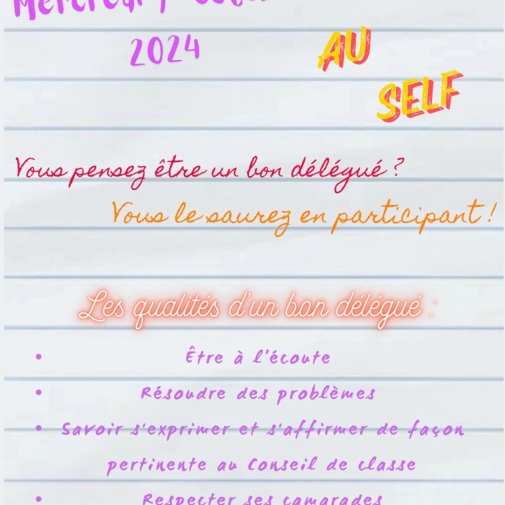 Mercredi
2024
AU
SELF
Vous pensez être un bon délégué ?
Vous le saurez en participant !
Les qualités d'un bon délégué :
Être à l'écoute
Résoudre des problèmes
Savoir s'exprimer et s'affirmer de façon
pertinente au Conseil de classe
Respecter ses camarades